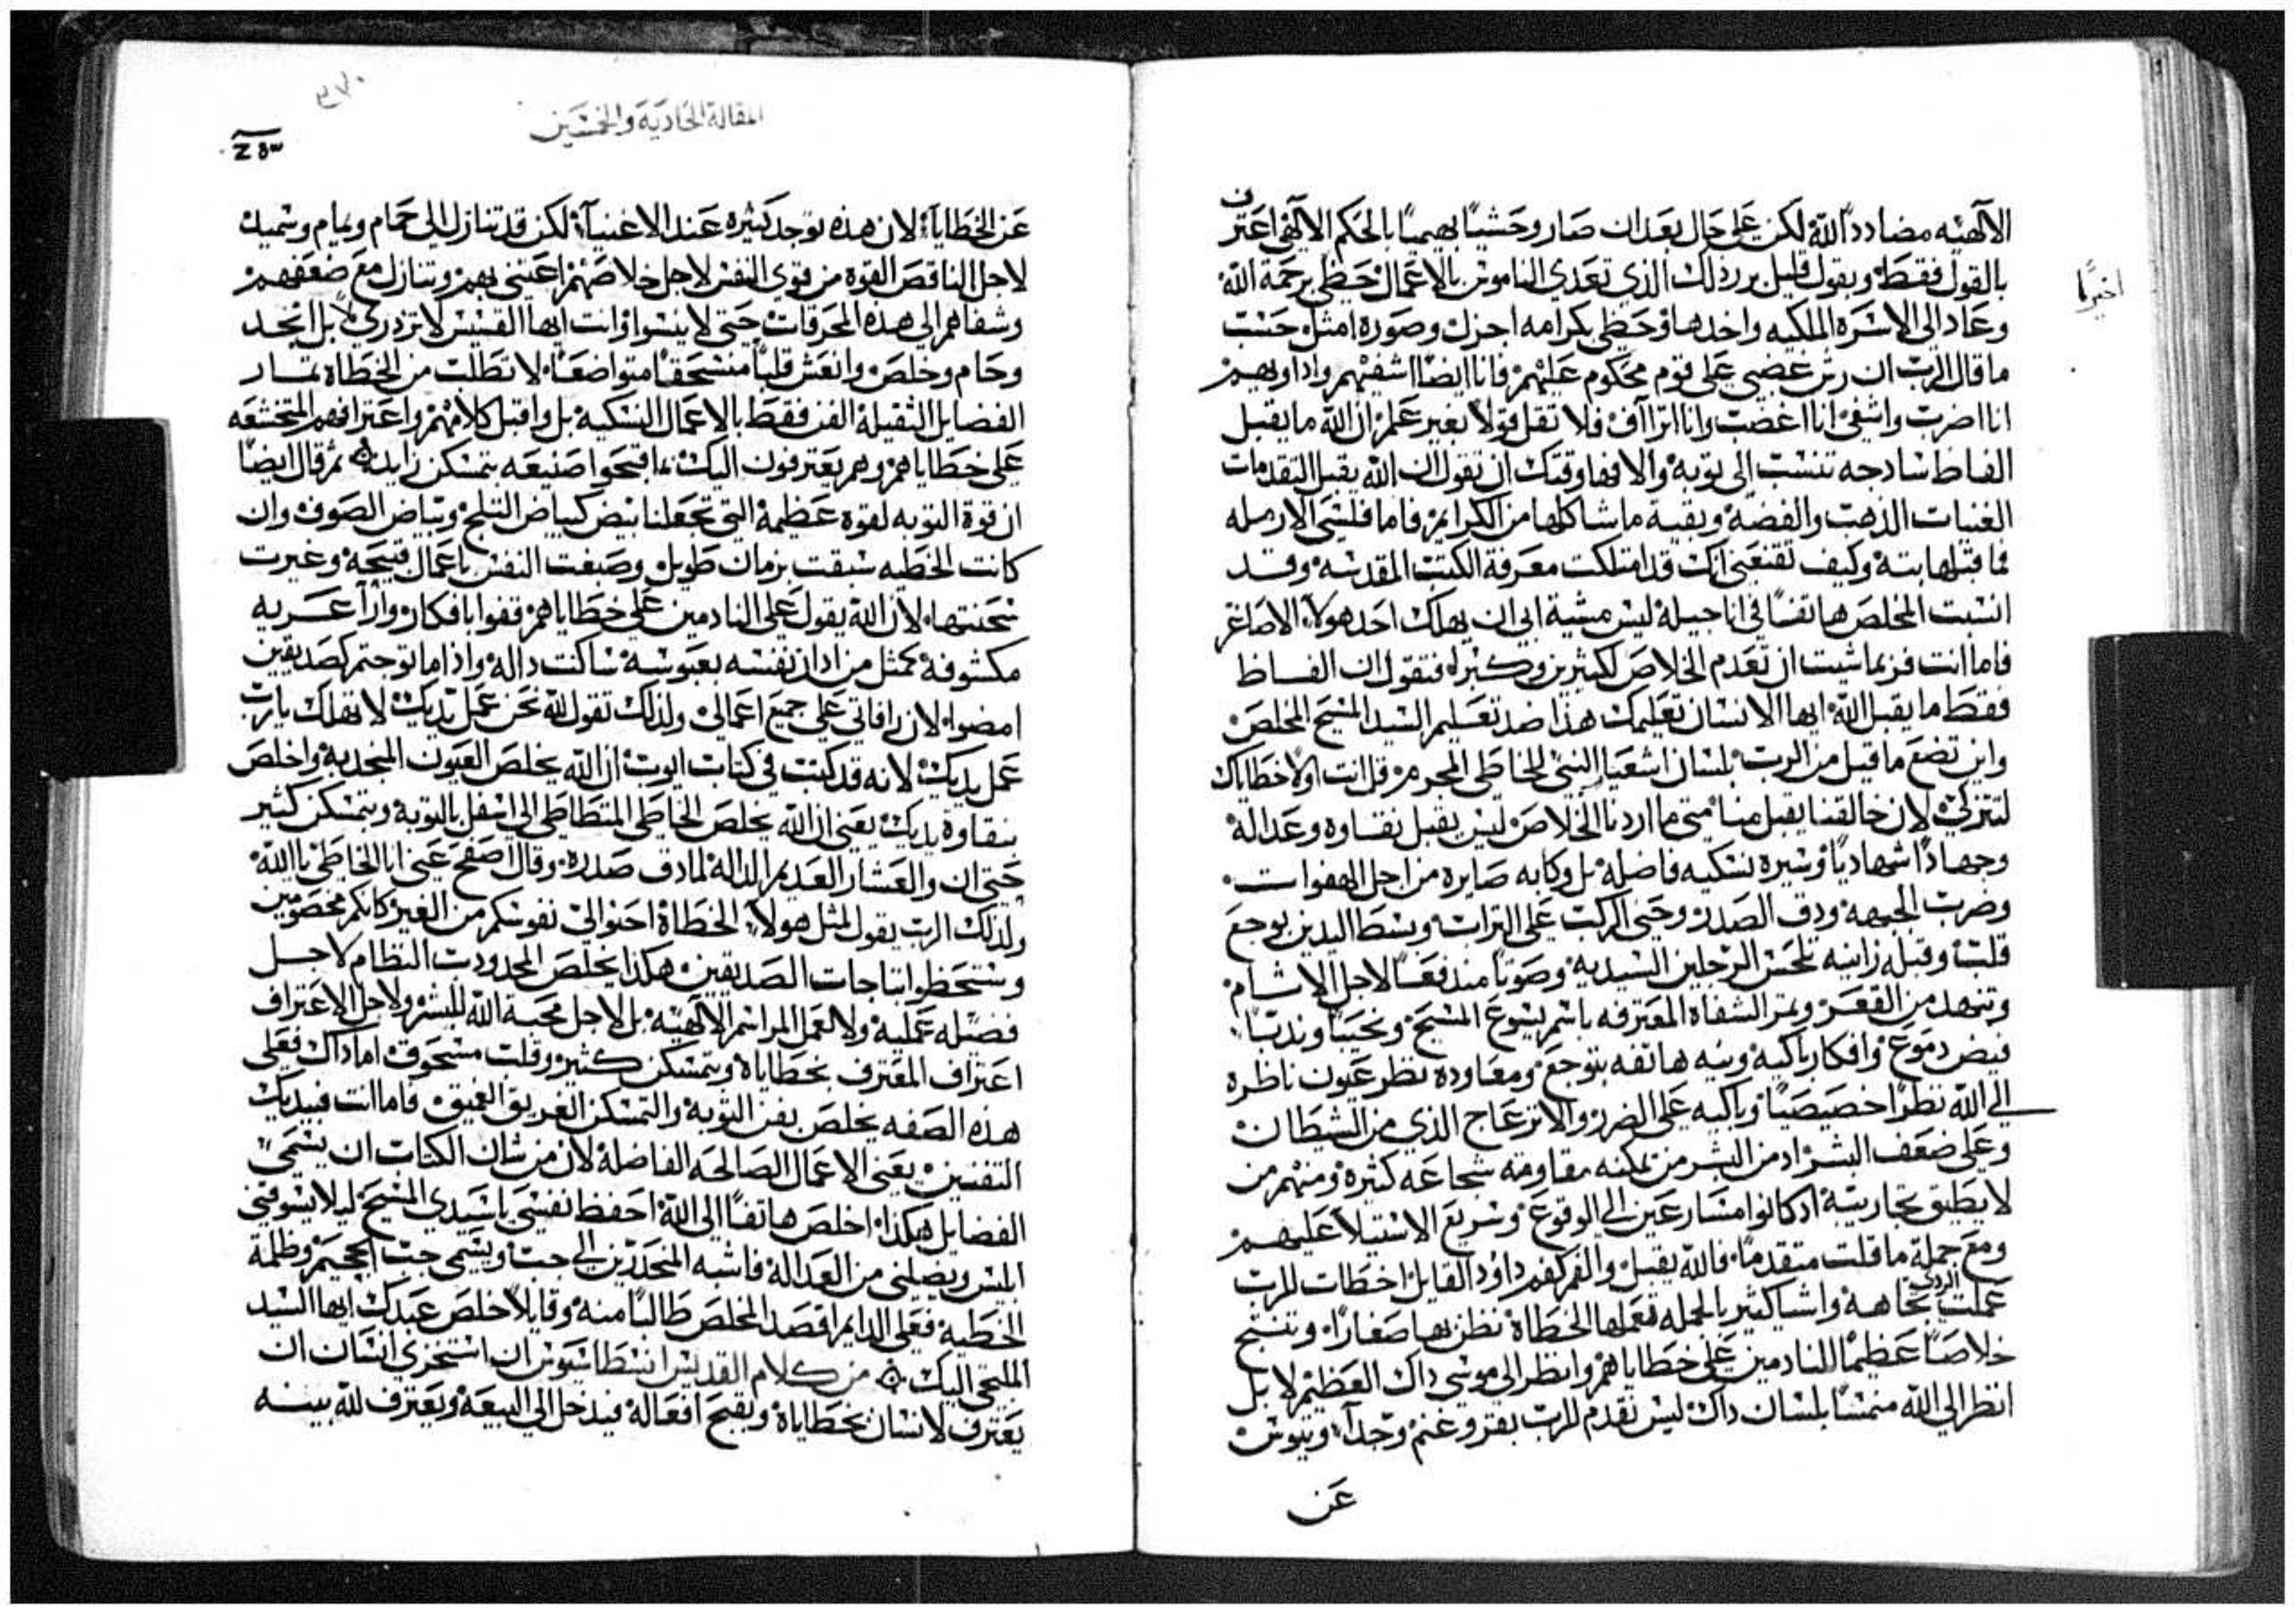 الآلهيه مضاددًا لله لكن على حال بعد ان صار وحشيًا بهيميًا بالحكم الآلهي اعترف
بالقول فقط ويقول قليل برر ذلك الذي تعدى الناموس بالاعمال حظى برحمة الله
اخيرًا
وعاد الى الاسرة الملكيه واخدها وحظى بكرامه اجزل وصوره امثل حسب
ما قال الرب ان رش غضبي على قوم محكوم عليهم فانا ايضًا اشفيهم واداويهم
انا اضرب واشفي انا اغضب وانا اتراآف فلا تقل قولًا بغير علم ان الله ما يقبل
الفاظ سادجه تنسب الى توبة والا فها وقتك ان تقول ان الله يقبل التقدمات
الغنيات الذهب والفضة وبقية ما شاكلها من الكرايم فاما فلسي الارمله
فما قبلها بتة وكيف تقنعني انك قد امتلكت معرفة الكتب المقدسه وقد
انسيت المخلص هاتفًا في اناجيله ليس مشية ابي ان يهلك احد هولاء الاصاغر
فاما انت فربما شيت ان تعدم الخلاص لكثيرين وكبراء فتقول ان الفاظ
فقط ما يقبل الله ايها الانسان تعليمك هذا ضد تعليم السيد المسيح المخلص
واين تضع ما قيل من الرب بلسان اشعيا النبي للخاطي المجرم قل انت اولًا خطاياك
لتتزكى لان خالقنا يقبل منا متى ما اردنا الخلاص ليس يقبل نقاوه وعداله
وجهادًا شهاديًا وسيره نسكيه فاضلة بل وكابه صايره من اجل الهفوات
وضرب الجبهة ودق الصدر وحنى الركب على التراب وبسط اليدين بوجع
قلب وقبله زانيه تلحس الرجلين السيديه وصوتًا مندفعًا لاجل الاثام
وتنهد من القعر وثمر الشفاه المعترفه باسم يسوع المسيح ونحيبًا وندبًا
فيض دموع وافكار باكيه ونيه هاتفه بتوجع ومعاوده نظر عيون ناظره
الى الله نظرًا خصيصيًا وباكيه على الضرر والانزعاج الذي من الشطان
وعلى ضعف البشر اد من البشر من يمكنه مقاومته بشجاعه كثيره ومنهم من
لا يطيق محاربته ادكانوا مسارعين الى الوقوع وسريع الاستيلا عليهم
ومع جملة ما قلت متقدمًا فالله يقبل والفم كفم داود القايل اخطات للرب
عملت الردي تجاهه واشيا كثير بالجمله تعملها الخطاة نظن بها صغارًا وتنتج
خلاصًا عظيمًا للنادمين على خطاياهم وانظر الى موسى داك العظيم لا بل
انظر الى الله منمسًا بلسان داك ليس تقدم للرب بقر وغنم وجدآء وتيوس
عن
المقالة الحاديه والخمسين
عن الخطايا لان هذه توجد كثيره عند الاغنيآء لكن قد تنازل الى حمام ويمام وسميد
لاجل الناقص القوه من قوي النفس لاجل خلاصهم اعتنى بهم وتنازل مع ضعفهم
وشفاهم الى هذه المحرقات حتى لا ييسوا وانت ايها القسيس لا تزدري بل انجد
وحام وخلص وانعش قلبًا منسحقًا متواضعًا لا تطلب من الخطاة ثمار
الفضايل الثقيلة الفن فقط بالاعمال النسكيه بل واقبل كلامهم واعترافهم المتخشعه
على خطاياهم وهم يعترفون اليك ما اقبحوا صنيعه بتمسكن زايد ثم قال ايضًا
ان قوة التوبه لقوه عظيمة التي تجعلنا نبيض كبياض الثلج وبياض الصوف وان
كانت الخطيه سبقت بزمان طويل وصبغت النفس باعمال قبيحة وغيرت
سحنتها لان الله يقول على النادمين على خطاياهم قفوا بافكار وارآ عربه
مكشوفة كمثل من ادان نفسه بعبوسة ساكت داله واذا ما توجتم كصديقين
امضوا لان رافاتي على جميع اعمالي ولذلك تقول لله نحن عمل يديك لا تهلك يا رب
عمل يديك لانه قد كتب في كتاب ايوب ان الله يخلص العيون المنحدبة واخلص
بنقاوة يديك يعني ان الله يخلص الخاطي المتطاطي الى اسفل بالتوبة وبتمسكن كثير
حتى ان والعشار العديم الداله لما دق صدره وقال اصفح عني انا الخاطي يا الله
ولذلك الرب يقول لمثل هولاء الخطاة احنوا الي نفوسكم من الغير كانكم مخصومين
وستحظوا بتاجات الصديقين هكذا يخلص المحدودب النظام لا جل
فضيله عملية ولا لعمل المراسم الآلهيه بل لاجل محبة الله للبشر ولاجل الاعتراف
اعتراف المعترف بخطاياه وبتمسكن كثير وقلب مسحوق اما داك فعلى
هذه الصفه يخلص بفن التوبة والتمسكن الغريق العميق فاما انت فبيديك
النقيين يعني الاعمال الصالحه الفاضلة لان من شان الكتاب ان يسمى
الفضايل هكذا اخلص هاتفًا الى الله احفظ نفسي يا سيدي المسيح ليلا يسوقني
ابليس ويضلني من العداله فاشبه المنحدرين الى جب ويسمى جب الجحيم وظلمة
الخطية فعلى الدايم اقصد المخلص طالبًا منه وقايلًا خلص عبدك ايها السيد
الملتجي اليك من كلام القديس انسطاسيوس ان استخزي انسان ان
يعترف لانسان بخطاياه ويقبح افعاله فيدخل الى البيعة ويعترف لله بينه